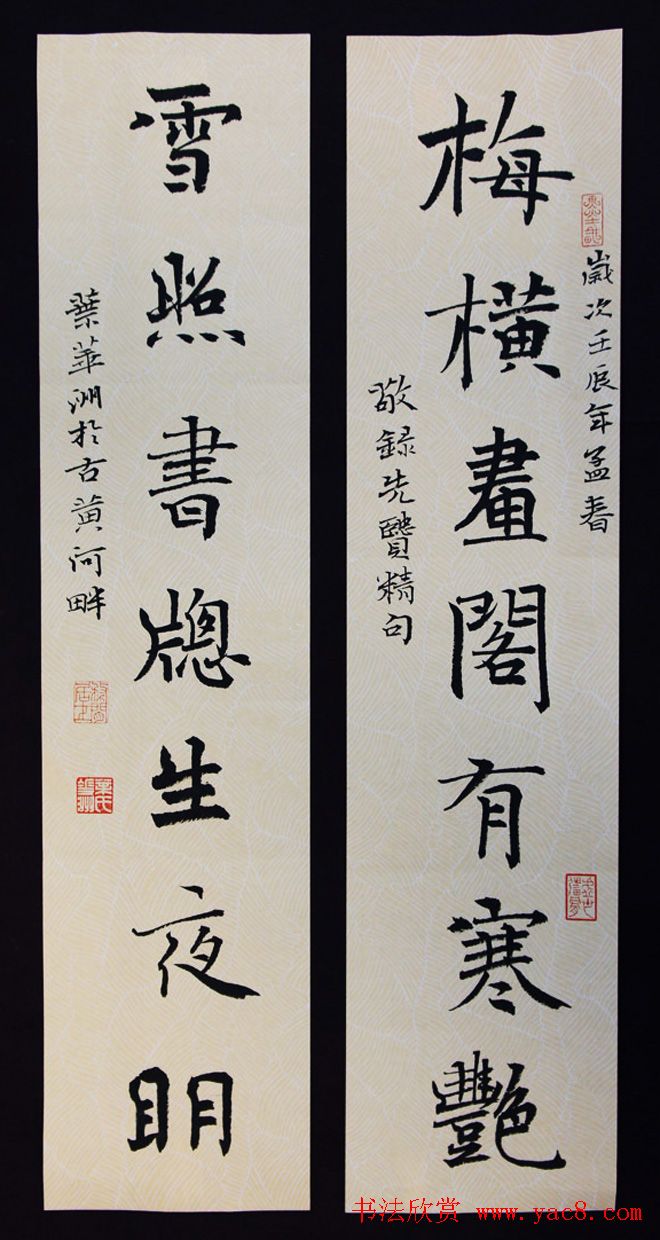 梅橫畫閣有寒艷
歲次壬辰年孟春
敬録先賢精句
雪照書牕生夜明
葉華洲於古黄河畔
书法欣赏 www.yac8.com